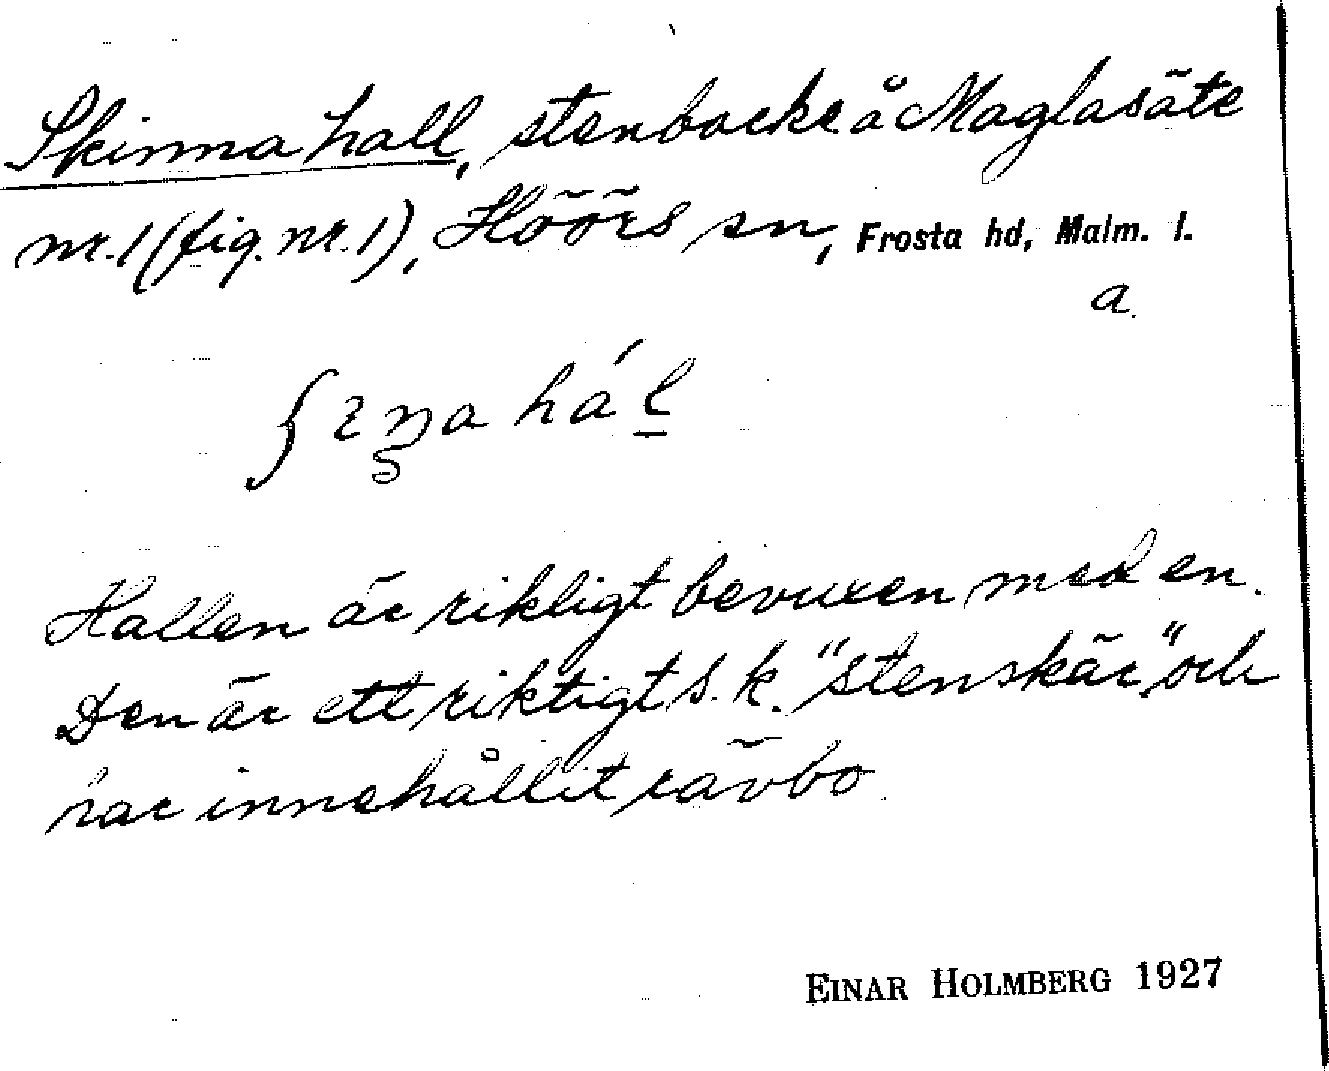 Skinna hall, stenbacke å Maglasäte
nr. 1 (fig. nr. 1), Höörs sn, Frosta hd, Malm. l.
a.
Hallen är rikligt bevuxen med en.
Den är ett riktigt s. k. "stenskär" och
har innehållit rävbo.
EINAR HOLMBERG 1927